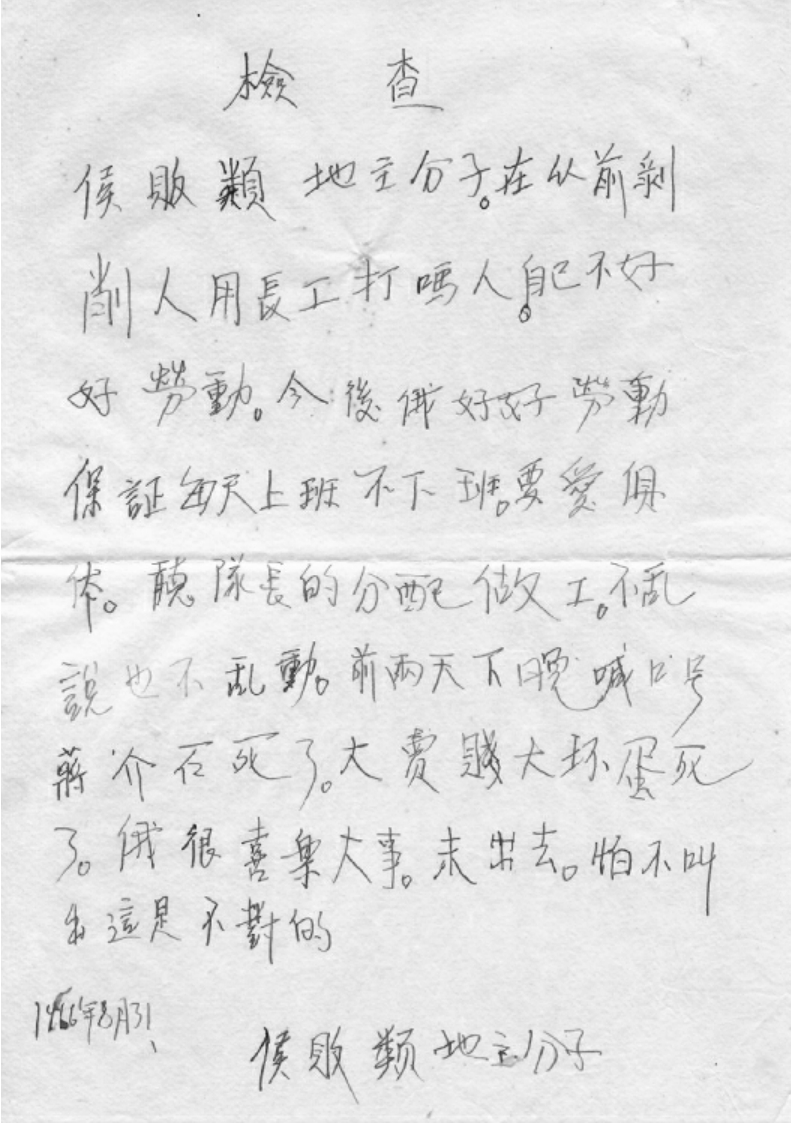 檢 查
侯敗類 地主分子。在从前剥
削人用長工打嗎人。自己不好
好勞動。今後俄好好勞動
保証每天上班不下班。要愛俱
体。聽隊長的分配做工。不乱
說也不乱動。前兩天下晚喊口号
蔣介石死了。大賣賤大坏蛋死
了。俄很喜樂大事。未出去。怕不叫
出這是不對的
1966年8月31
侯敗类地主分子